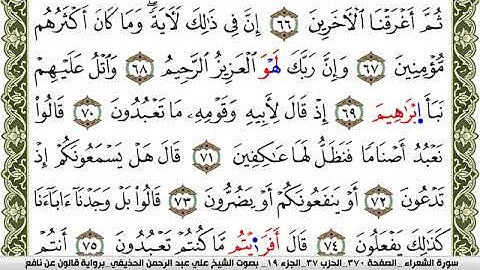 ثُمَّ أَغْرَقْنَا اَ۬لَاخَرِينَ ٦٦ إِنَّ فِے ذَٰلِكَ لَأٓيَةٗۖ وَمَا كَانَ أَكْثَرُهُم
مُّؤْمِنِينَ ٦٧ وَإِنَّ رَبَّكَ لَهْوَ اَ۬لْعَزِيزُ اُ۬لرَّحِيمُ ٦٨ وَاتْلُ عَلَيْهِمْ
نَبَأَ اِ۪بْرَٰهِيمَ ٦٩ إِذْ قَالَ لِأَبِيهِ وَقَوْمِهِۦ مَا تَعْبُدُونَ ٧٠ قَالُواْ
نَعْبُدُ أَصْنَامٗا فَنَظَلُّ لَهَا عَٰكِفِينَ ٧١ قَالَ هَلْ يَسْمَعُونَكُمْ إِذْ
تَدْعُونَ ٧٢ أَوْ يَنفَعُونَكُمْ أَوْ يَضُرُّونَ ٧٣ قَالُواْ بَلْ وَجَدْنَا ءَابَآءَنَا
كَذَٰلِكَ يَفْعَلُونَ ٧٤ قَالَ أَفَرَٰٓيْتُم مَّا كُنتُمْ تَعْبُدُونَ ٧٥ أَنتُمْ
سورة الشعراء _ الصفحة ٣٧٠_ الحزب ٣٧_ الجزء ١٩ _ بصوت الشيخ علي عبد الرحمن الحذيفي_ برواية قالون عن نافع